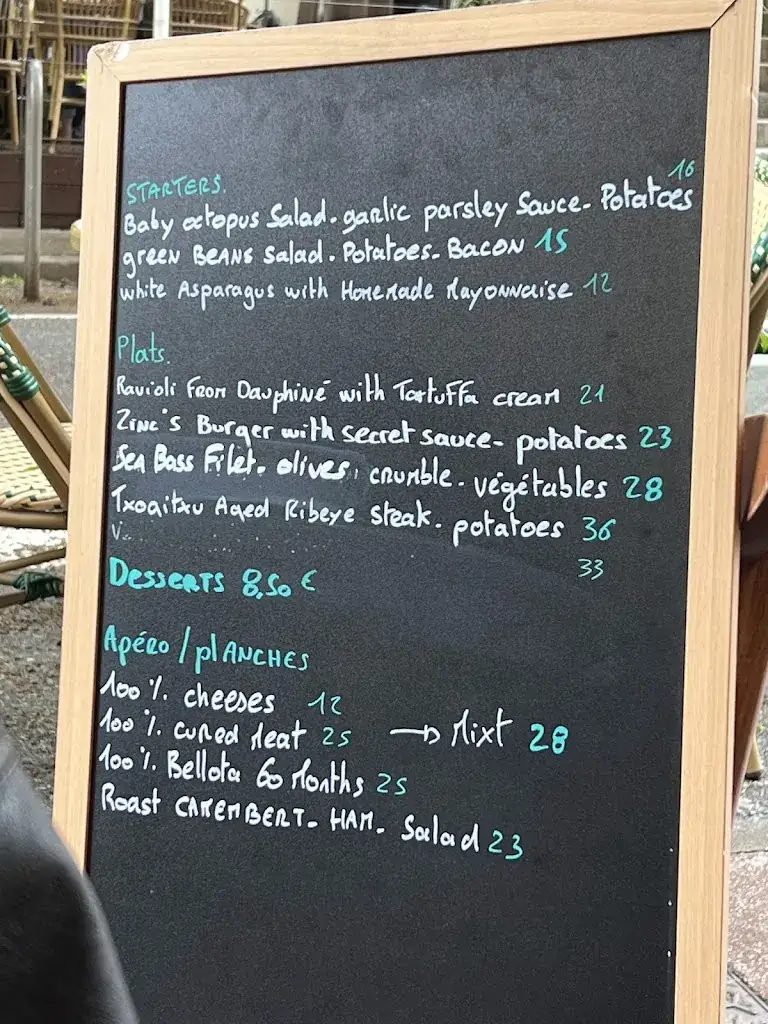 STARTERS.
Baby octopus Salad. garlic parsley Sauce- Potatoes 16
green BEANS Salad. Potatoes- BACON 15
white Asparagus with Homemade Mayonnaise 12
Plats.
Ravioli From Dauphiné with Tartuffa cream 21
Zinc's Burger with secret sauce- potatoes 23
Sea Bass Filet. olives, crumble. végétables 28
Txogitxu Aged Ribeye Steak. potatoes 36
33
Desserts 8,50 €
Apéro/planches
100 % cheeses 12
100 % cured Meat 25 → Mixt 28
100 % Bellota 60 Months 25
Roast CAMEMBERT- HAM- Salad 23